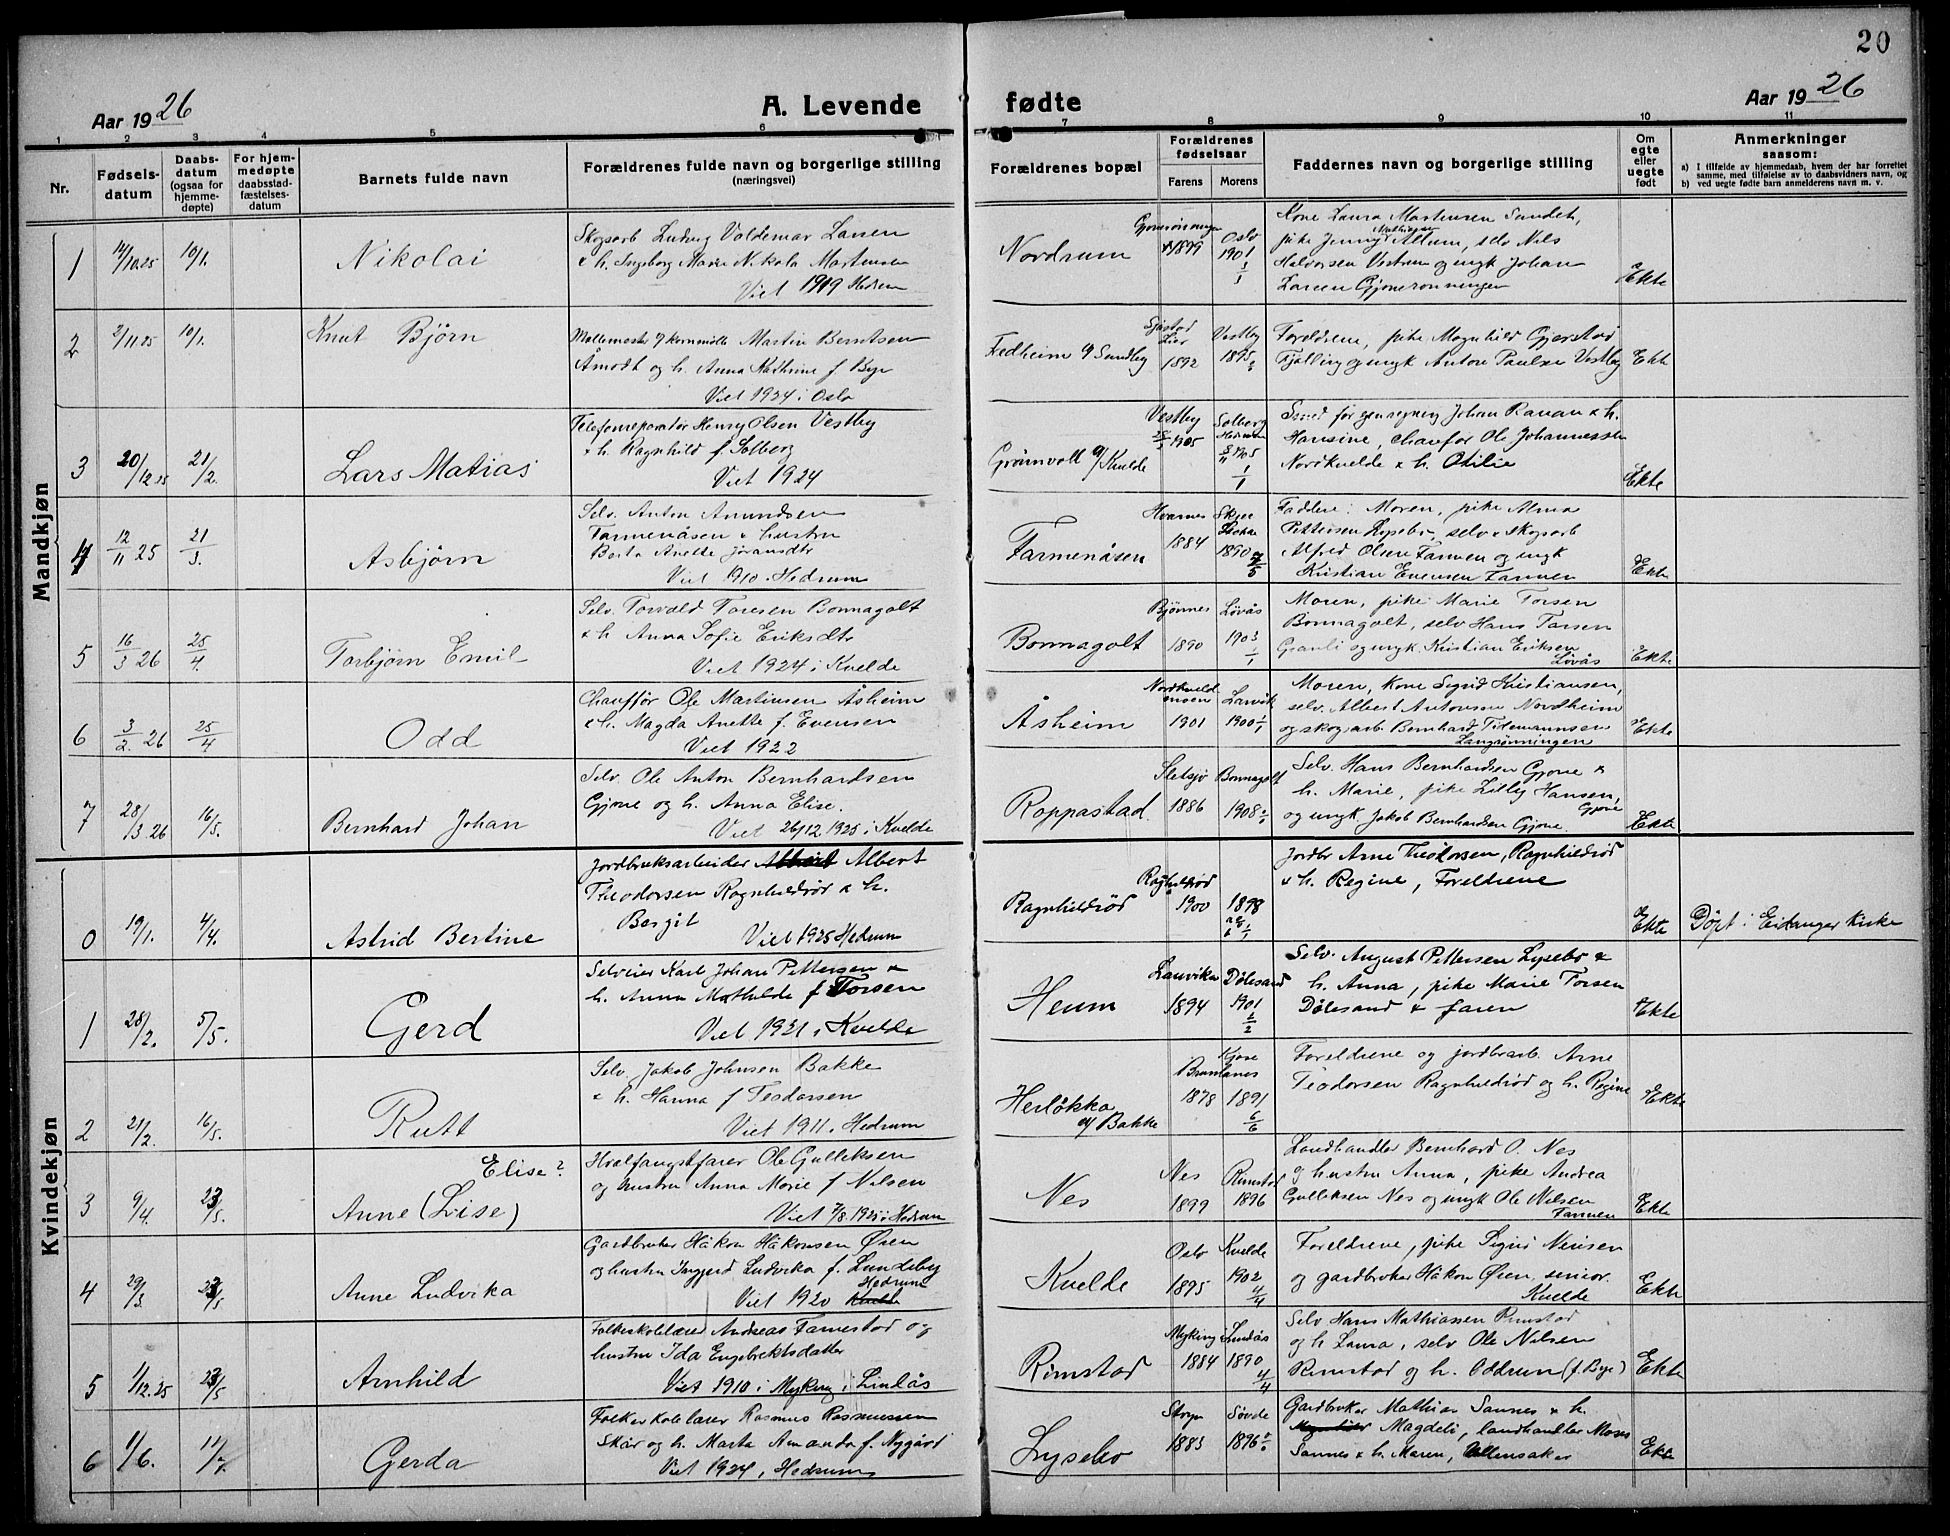 20
Aar 1926
A. Levende fødte
Aar 1926
1 2 3 4 5 6 7 8 9 10 11
Nr.
Fødselsdatum
Daabsdatum (ogsaa for hjemmedøpte)
For hjemmedøpte daabsstadfæstelsesdatum
Barnets fulde navn
Forældrenes fulde navn og borgerlige stilling
(næringsvei)
Forældrenes bopæl
Forældrenes fødselsaar
Farens Morens
Faddernes navn og borgerlige stilling
Om egte eller uegte født
Anmerkninger
saasom:
a) I tilfælde av hjemmedaab, hvem der har forrettet samme, med tilføielse av to daabsvidners navn, og
b) ved uegte fødte barn anmelderens navn m. v.
Mandkjøn
1 14/10.25 10/1. Nikolai
Skogsarb Ludvig Valdemar Larsen
& h. Ingeborg Marie Nikola Martensen
Viet 1919 Hedrum
Nordrum
1899
Oslo 1901
Kone Laura Martensen Sundet,
pike Jenny Mathisen Allum, selv Nils
Halvorsen Vestrum og ungk Johan
Larsen Gjonerønningen
Ekte
2 2/11.25 10/1. Knut Bjørn
Møllemester v/ kornmølle Martin Berntsen
Åmodt og h. Anna Kathrine f Bye
Viet 1924 i Oslo
Fedheim v/ Sundby
Lier 1892
Vestby 1895
Foreldrene, pike Magnhild Gjerstad
Tjølling og ungk Anton Paulsen Vestby
Ekte
3 20/12.25 21/2. Lars Matias
Telefonreparatør Henry Olsen Vestby
& h. Ragnhild f. Solberg
Viet 1924
Grønvoll v/ Kvelde
Vestby 1905
Solberg Hedrum 1905
Smed for egen regning Johan Ranan & h.
Hansine, chaufør Ole Johannessen
Nordkvelde & h. Otilie
Ekte
4 12/11 25 21/3. Asbjørn
Selv. Anton Amundsen
Farmenåsen & hustru
Berta Anette Jøransdtr
Viet 1910. Hedrum
Farmenåsen
Hvarnes 1884
1890
Faddere: Moren, pike Alma
Pettersen Lysebo, selv & skogsarb
Alfred Olsen Farmen og ungk
Kristian Evensen Farmen
Ekte
5 16/3 26 25/4. Torbjørn Emil
Selv. Torvald Toresen Bonnagolt
& h Anna Sofie Eriksdtr
Viet 1924 i Kvelde
Bonnagolt
Bjønnes 1890
Løvås 1903 1/1
Moren, pike Marie Torsen
Bonnagolt, selv Hans Torsen
Granli og ungk. Kristian Eriksen
Løvås
Ekte
6 3/2. 26 25/4 Odd
Chauffør Ole Martinsen Åsheim
& h. Magda Anette f. Evensen
Viet 1922
Åsheim
1901
Larvik 1900 1/1
Moren, Kone Sigrid Kristiansen,
selv. Albert Antonsen Nordheim
og skogsarb Bernhard Tidemannsen
Langrønningen
Ekte
7 28/3 26 16/5. Bernhard Johan
Selv. Ole Anton Bernhardsen
Gjone og h. Anna Elise.
Viet 26/12.1925 i Kvelde
Roppastad
Sletsjø 1886
Bonnagolt 1908
Selv. Hans Bernhardsen Gjone &
h. Marie, pike Lilly Hansen,
Gjone
og ungk. Jakob Bernhardsen Gjone.
Ekte
Kvindekjøn
0 19/1. 4/4. Astrid Bertine
Jordbruksarbeider Albert
Theodorsen Ragnhildrød & h.
Bergit
Viet 1925 Hedrum
Ragnhildrød
Ragnhildrød 1900
1898
Jordbr Arne Theodorsen, Ragnhildrød
& h. Regine, Foreldrene
Ekte
Døpt i Eidanger Kirke
1 28/2. 5/5. Gerd
Selveier Karl Johan Pettersen &
h. Anna Mathilde f Torsen
Viet 1921 i Kvelde
Heum
1894
Dølesand 1901 2/2
Selv. August Pettersen Lysebo &
h. Anna, pike Marie Torsen
Dølesand & faren
Ekte
2 21/2. 16/5. Rutt
Selv. Jakob Johnsen Bakke
& h. Hanna f Teodorsen
Viet 1911. Hedrum
Herløkka
v/ Bakke
1878
1891 6/6
Foreldrene og jordbrarb. Arne
Teodorsen Ragnhildrød og h. Regine
Ekte
3 9/4. 23/5. Anne (Lise) Elise?
Hvalfangstfarer Ole Gulleksen
og hustru Anna Marie f Nilsen
Viet 7/8. 1925 i Hedrum
Nes
Nes 1899
Rimstad 1896
Landhandler Bernhard O. Nes
og hustru Anna, pike Andrea
Gulleksen Nes og ungk Ole Nilsen
Farmen
Ekte
4 29/3. 23/5 Anne Ludvika
Gardbruker Håkon Håkonsen Øien
og hustru Ingjerd Ludvika f. Lundeby
Hedrum
Viet 1920 Kvelde
Kvelde
Oslo 1895
Kvelde 1902 4/4
Foreldrene, pike Sigrid Nensen
og gardbruker Håkon Øien, senior.
Kvelde
Ekte
5 1/12.25 23/5 Arnhild
Folkeskolelærer Andreas Farnestad og
hustru Ida Engebrektsdatter
Viet 1910 i Myking i Lindås
Rimstad
Myking 1884
Lindås 1890 4/4
Selv Hans Mathiassen Rimstad
og h Laura, selv Ole Nilsen
Rimstad og h. Oddrun (f. Bye)
Ekte
6 1/6. 11/7. Gerda
Folkeskolelærer Rasmus Rasmussen
Skår og h. Marta Amanda f. Nygård
Viet 1924, Hedrum
Lysebo
Stryn 1883
Søvde 1896
Gardbruker Mathias Sannes & h.
Magdeli, landhandler Moses
Sannes & h. Maren, Ullensaker
Ekte